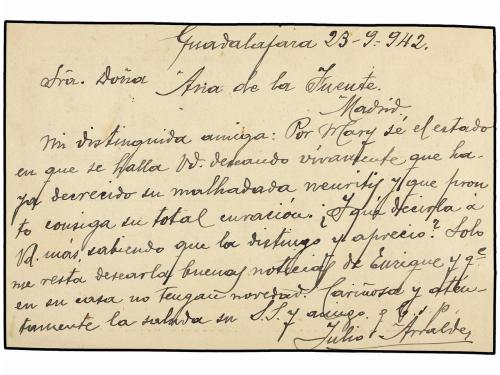 Guadalajara 23-9-942.
Sra. Doña Ana de la Fuente.
Madrid.
Mi distinguida amiga: Por Mary sé el estado
en que se halla Vd. deseando vivamente que ha-
ya decrecido su malhadada neuritis y que pron-
to consiga su total curación. ¿Y que decirla a
Vd. más, sabiendo que la distingo y aprecio? Solo
me resta desearla buenas noticias de Enrique y qe.
en su casa no tengan novedad. Cariñosa y aten-
tamente la saluda su S.S. y amigo. q.
Julio